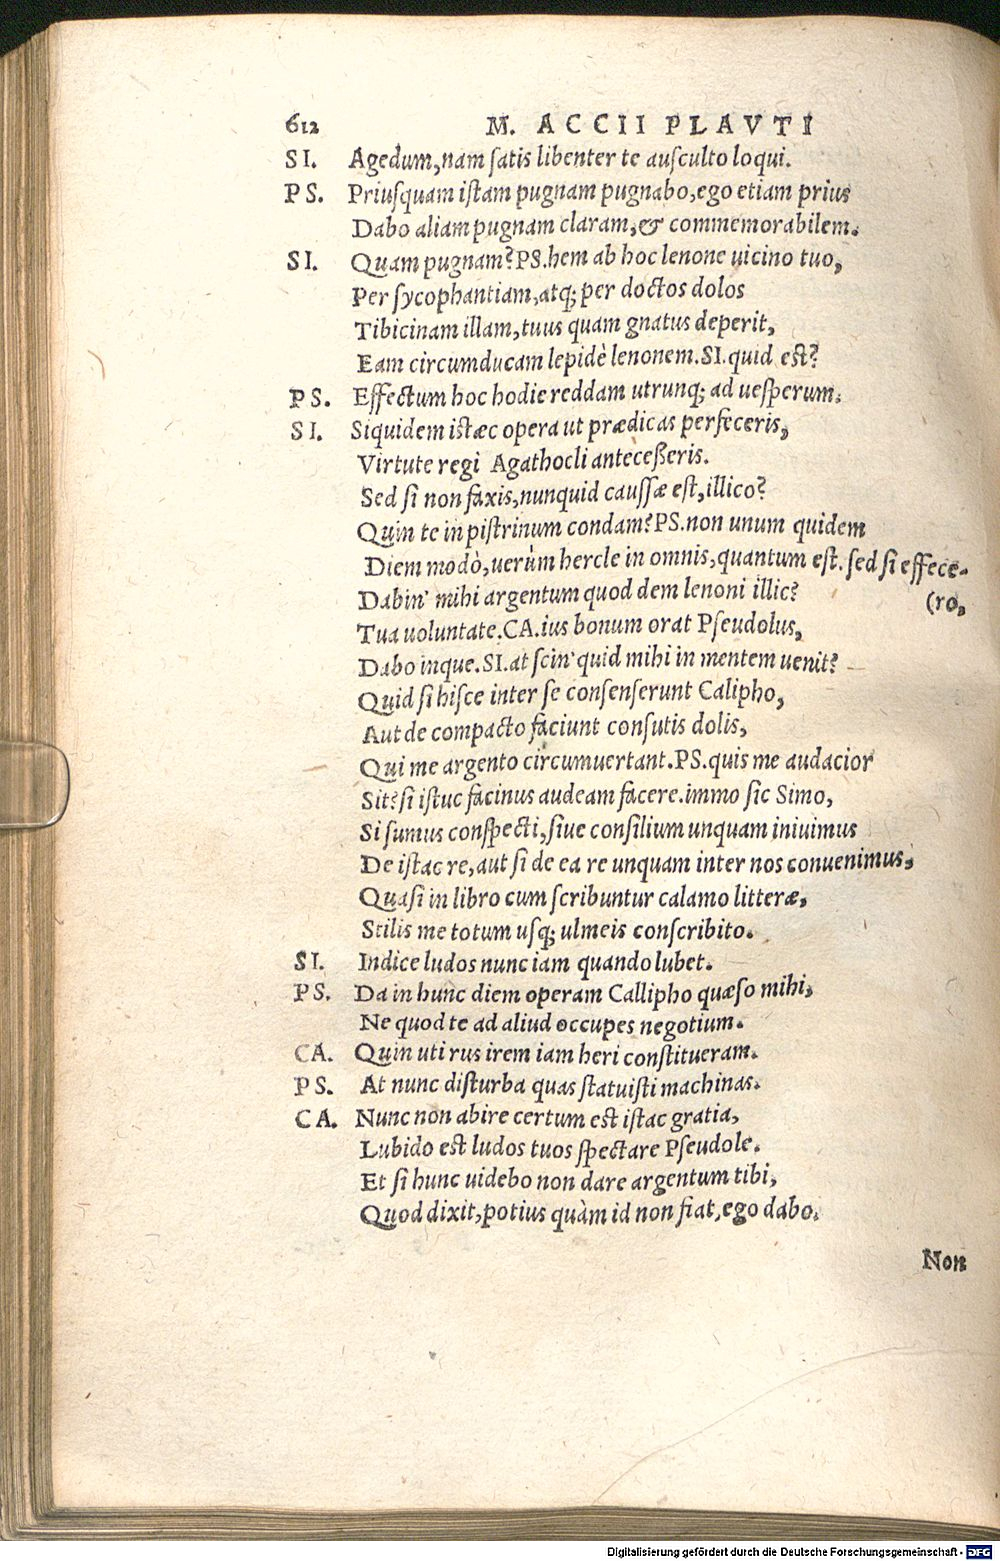 612 M. ACCII PLAVTI
SI. Agedum, nam ſatis libenter te auſculto loqui.
PS. Priuſquam iſtam pugnam pugnabo, ego etiam prius
Dabo aliam pugnam claram, & commemorabilem.
SI. Quam pugnam? PS. hem ab hoc lenone uicino tuo,
Per ſycophantiam, atq; per doctos dolos
Tibicinam illam, tuus quam gnatus deperit,
Eam circumducam lepidè lenonem. SI. quid est?
PS. Effectum hoc hodie reddam utrunq; ad ueſperum.
SI. Siquidem istæc opera ut prædicas perfeceris,
Virtute regi Agathocli anteceßeris.
Sed ſi non faxis, nunquid cauſſæ est, illico?
Quin te in piſtrinum condam? PS. non unum quidem
Diem modò, uerùm hercle in omnis, quantum est. ſed ſi effece-
Dabin' mihi argentum quod dem lenoni illic? (ro,
Tua uoluntate. CA. ius bonum orat Pſeudolus,
Dabo inque. SI. at ſcin' quid mihi in mentem uenit?
Quid ſi hiſce inter ſe conſenſerunt Calipho,
Aut de compacto faciunt conſutis dolis,
Qui me argento circumuertant. PS. quis me audacior
Sit? ſi iſtuc facinus audeam facere. immo ſic Simo,
Si ſumus conſpecti, ſiue conſilium unquam iniuimus
De iſtac re, aut ſi de ea re unquam inter nos convenimus,
Quaſi in libro cum ſcribuntur calamo litteræ,
Stilis me totum uſq; ulmeis conſcribito.
SI. Indice ludos nunc iam quando lubet.
PS. Da in hunc diem operam Callipho quæſo mihi,
Ne quod te ad aliud occupes negotium.
CA. Quin uti rus irem iam heri conſtitueram.
PS. At nunc diſturba quas ſtatuiſti machinas.
CA. Nunc non abire certum est iſtac gratia,
Lubido est ludos tuos ſpectare Pſeudole.
Et ſi hunc uidebo non dare argentum tibi,
Quod dixit, potius quàm id non fiat, ego dabo.
Non
Digitalisierung gefördert durch die Deutsche Forschungsgemeinschaft - DFG